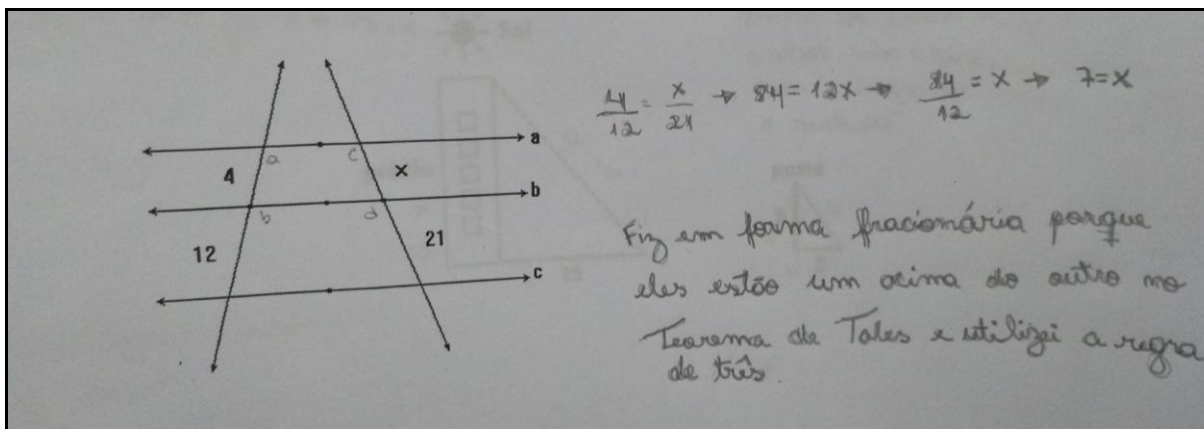 a
a
c
4
x
b
b
d
21
12
c
4/12 = x/21 → 84 = 12x → 84/12 = x → 7 = x
Fiz em forma fracionária porque
eles estão um acima do outro no
Teorema de Tales e utilizei a regra
de três.